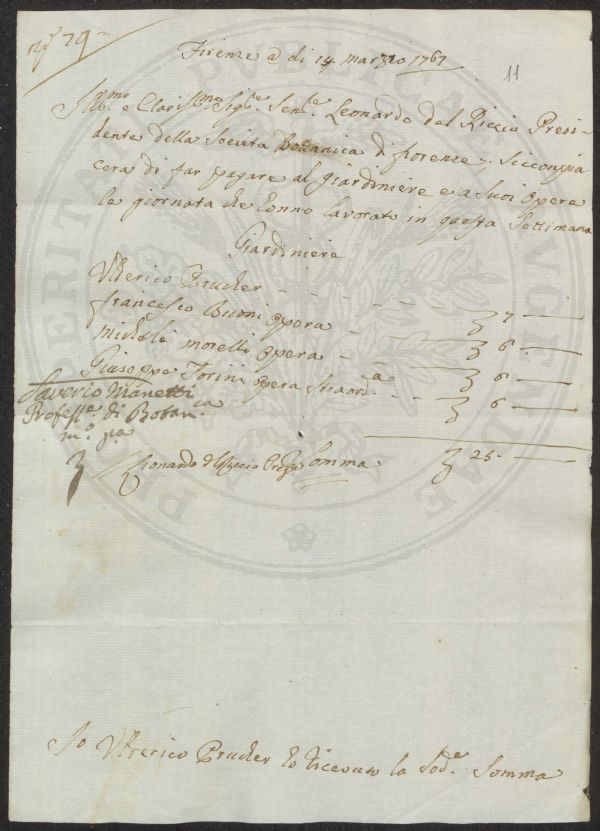 29
Firenze a di 14 marzo 1767
11
Ill.mo e Claris.mo Sig.re Sen.re Leonardo del Riccio Presi-
dente della Società Botanica di fiorenze, si cconpia
cera di far pagare al giardiniere e a suoi opere
le giornate che Conno lavorato in questa Settimana
Giardiniere
Ulderico Prucker - - - - - - 7 -
francesco Buoni opera - - - 6 -
nicholò morelli opera - - 6 -
Giuseppe Torini opera Straord.a - - 6 -
Saverio Manetti
Profess.e di Botan.ca
m.o pa
Leonardo del Riccio Pres.e Somma 25 -
Io Ulderico Prucker ho riceuuto la Sod.a Somma
PVBLICAE